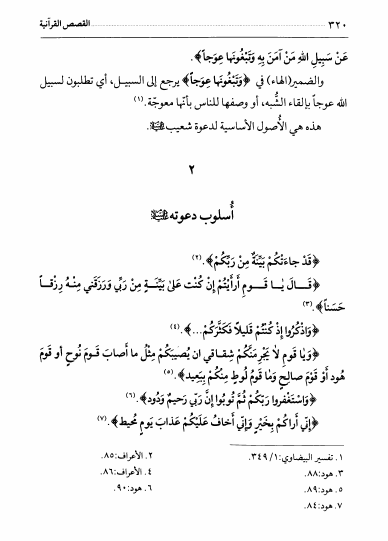 ٣٢٠ القصص القرآنية
عَنْ سَبِيلِ اللهِ مَنْ آمَنَ بِهِ وَتَبْغُونَها عِوَجاً﴾.
والضمير(الهاء) في ﴿وَتَبْغُونَها عِوَجاً﴾ يرجع إلى السبيل، أي تطلبون لسبيل
الله عوجاً بإلقاء الشُّبه، أو وصفها للناس بأنّها معوجّة.(١)
هذه هي الأُصول الأساسية لدعوة شعيبﷺ.
٢
أُسلوب دعوتهﷺ
﴿قَدْ جاءَتْكُمْ بَيِّنَةٌ مِنْ رَبِّكُمْ﴾.(٢)
﴿قَالَ يا قَومِ أَرأَيْتُمْ إِنْ كُنْت عَلىٰ بَيِّنَةٍ مِنْ رَبِّي وَرَزَقَني مِنْهُ رِزْقاً
حَسَناً﴾.(٣)
﴿وَاذْكُرُوا إِذْ كُنْتُمْ قَليلاً فَكَثَّرَكُمْ...﴾.(٤)
﴿وَيا قَومِ لا يَجْرِمَنَّكُمْ شِقاقي ان يُصيبَكُمْ مِثْلُ ما أَصابَ قَومَ نُوحٍ أو قَومَ
هُود أَوْ قَوْمَ صالِحٍ وَما قَومُ لُوطٍ مِنْكُمْ بِبَعيد﴾.(٥)
﴿وَاسْتَغْفِروا رَبَّكُمْ ثُمَّ تُوبُوا إِنَّ رَبّي رَحيمٌ وَدُود﴾.(٦)
﴿إِنّي أَراكُمْ بِخَيْرٍ وَإِنّي أَخافُ عَلَيْكُمْ عَذابَ يَومٍ مُحيط﴾.(٧)
١. تفسير البيضاوي:١/ ٣٤٩. ٢. الأعراف:٨٥.
٣. هود:٨٨. ٤. الأعراف:٨٦.
٥. هود:٨٩. ٦. هود:٩٠.
٧. هود:٨٤.